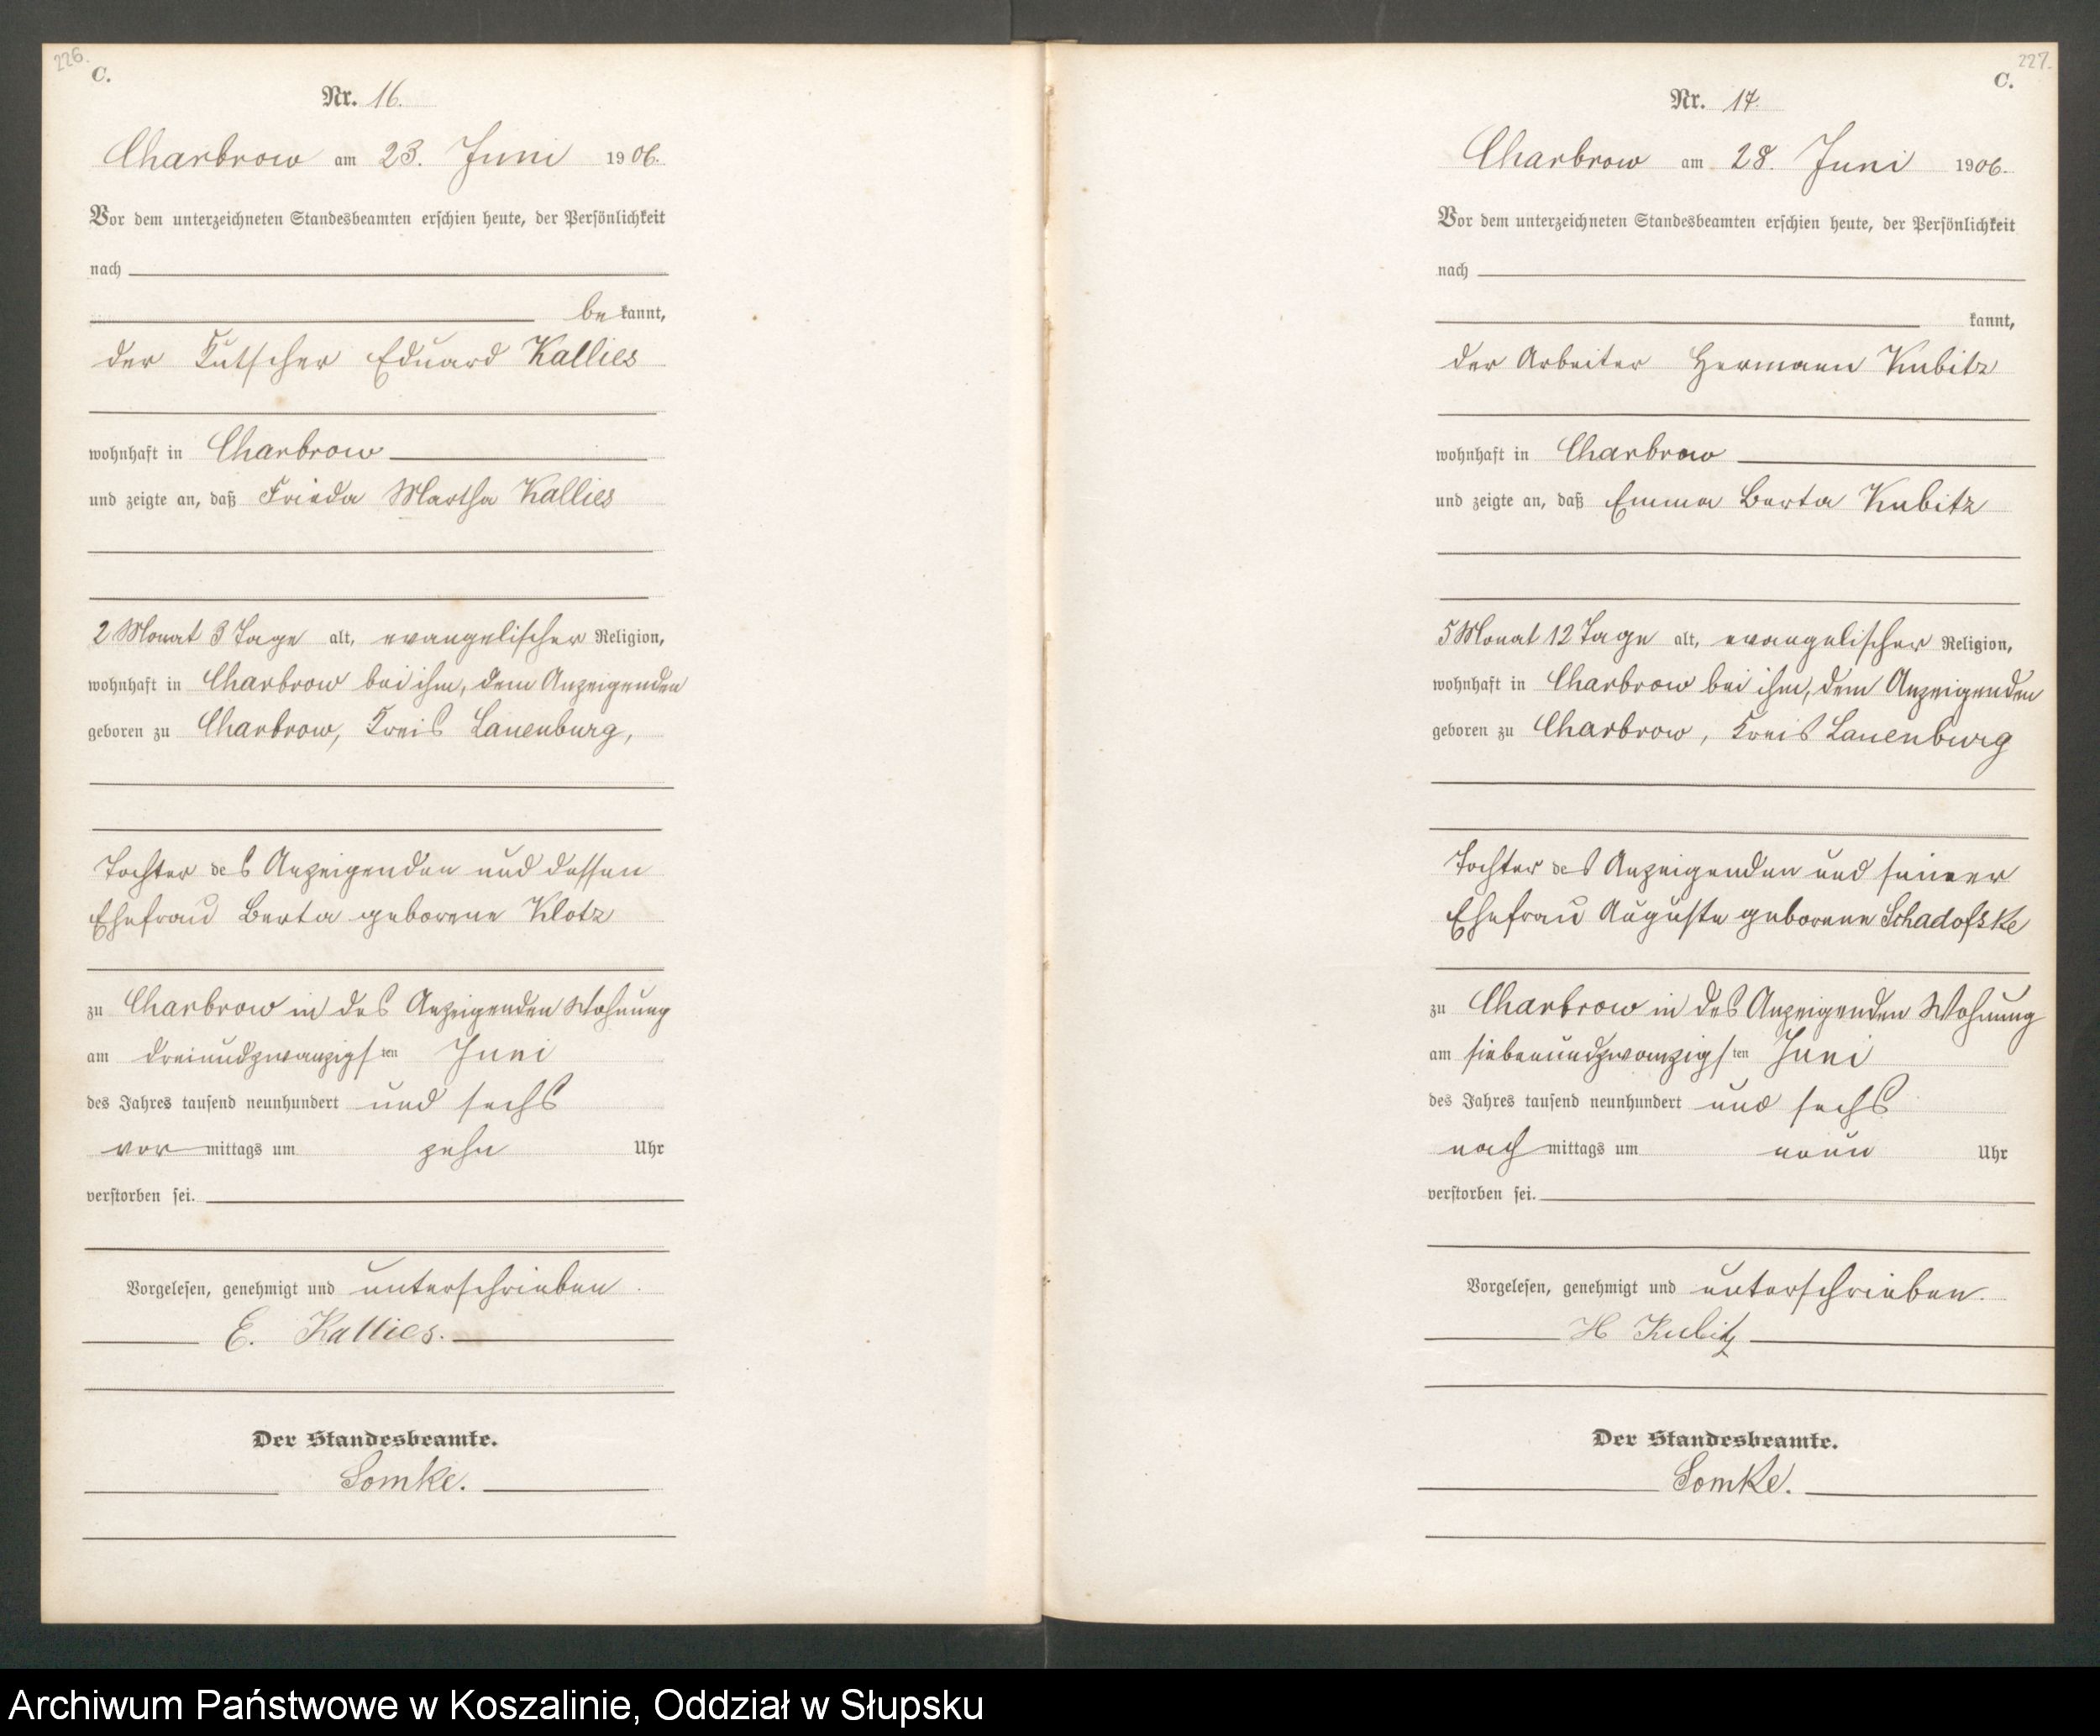 226.
C.
Nr. 16.
Charbrow am 23. Juni 1906.
Vor dem unterzeichneten Standesbeamten erschien heute, der Persönlichkeit
nach
bekannt,
der Kutscher Eduard Kallies
wohnhaft in Charbrow
und zeigte an, daß Frieda Martha Kallies
2 Monat 3 Tage alt, evangelischer Religion,
wohnhaft in Charbrow bei ihm, dem Anzeigenden
geboren zu Charbrow, Kreis Lauenburg,
Tochter des Anzeigenden und dessen
Ehefrau Berta geborene Klotz
zu Charbrow in des Anzeigenden Wohnung
am dreiundzwanzigsten Juni
des Jahres tausend neunhundert und sechs
vormittags um zehn Uhr
verstorben sei.
Vorgelesen, genehmigt und unterschrieben.
E. Kallies.
Der Standesbeamte.
Somke.
227.
C.
Nr. 17.
Charbrow am 28. Juni 1906.
Vor dem unterzeichneten Standesbeamten erschien heute, der Persönlichkeit
nach
kannt,
der Arbeiter Hermann Kubitz
wohnhaft in Charbrow
und zeigte an, daß Emma Berta Kubitz
5 Monat 12 Tage alt, evangelischer Religion,
wohnhaft in Charbrow bei ihm, dem Anzeigenden
geboren zu Charbrow, Kreis Lauenburg
Tochter des Anzeigenden und seiner
Ehefrau Auguste geborene Schadofske
zu Charbrow in des Anzeigenden Wohnung
am siebenundzwanzigsten Juni
des Jahres tausend neunhundert und sechs
nachmittags um neun Uhr
verstorben sei.
Vorgelesen, genehmigt und unterschrieben.
H Kubitz
Der Standesbeamte.
Somke.
Archiwum Państwowe w Koszalinie, Oddział w Słupsku